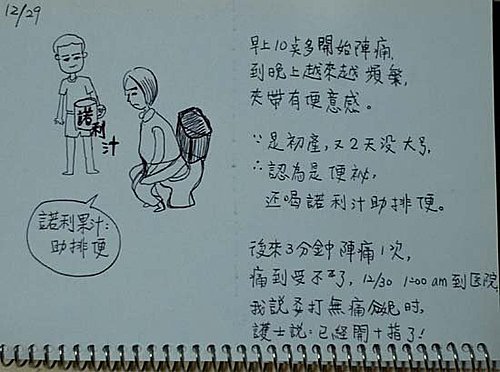 12/29
諾
利
汁
諾利果汁:
助排便
早上10點多開始陣痛,
到晚上越來越頻繁,
夾帶有便意感。
∵是初產,又2天没大号,
∴認為是便祕,
还喝諾利汁助排便。
後來3分鐘陣痛1次,
痛到受不了, 12/30 1:00 am 到医院,
我說要打無痛分娩時,
護士說:已經開十指了!